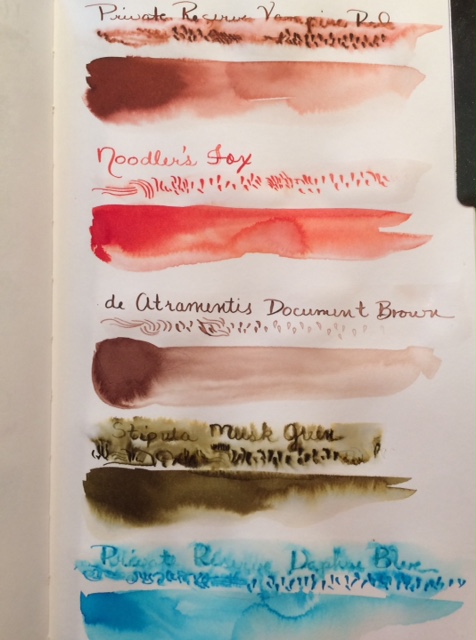 Private Reserve Vampire Red
Noodler's Fox
de Atramentis Document Brown
Stipula Musk Green
Private Reserve Daphne Blue